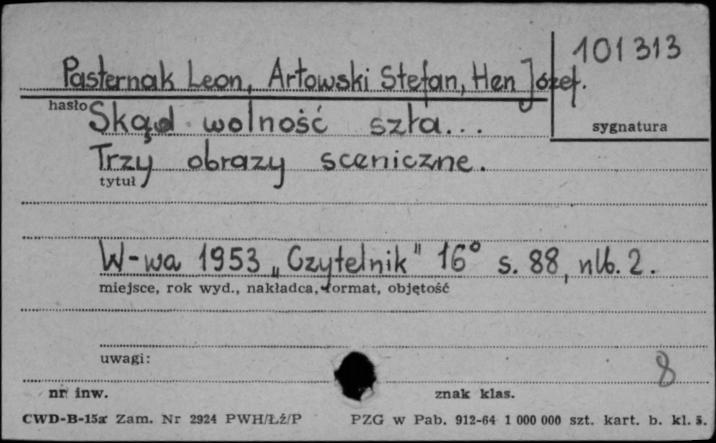 101313
Pasternak Leon, Artowski Stefan, Hen Józef.
hasło
sygnatura
Skąd wolność szła...
Trzy obrazy sceniczne.
tytuł
W-wa 1953 „Czytelnik" 16° s. 88, nlb. 2.
miejsce, rok wyd., nakładca, format, objętość
uwagi:
8
nr inw. znak klas.
CWD-B-15a Zam. Nr 2924 PWH/Łź/P PZG w Pab. 912-64 1 000 000 szt. kart. b. kl. 5.